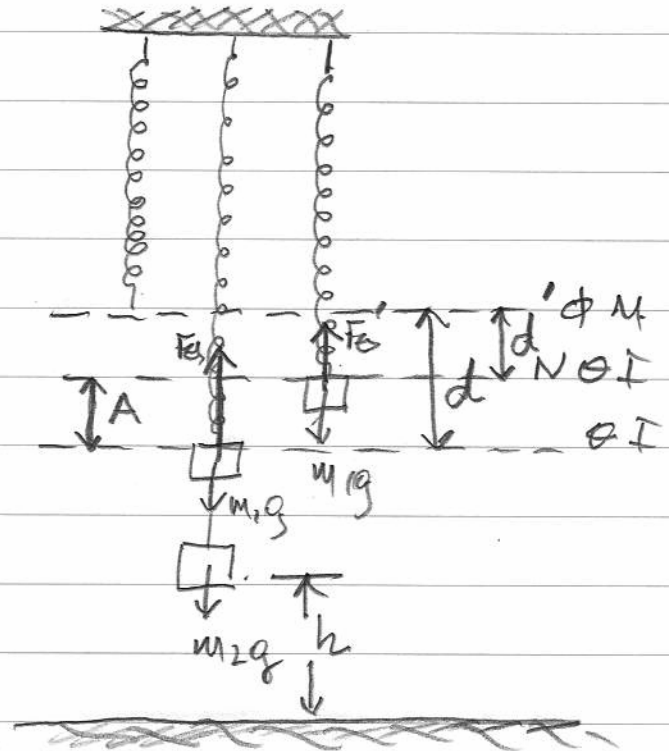 ΦΜ
Fελ
Fελ'
d'
ΝΘΙ
A
d
ΘΙ
m₁g
m₁g
m₂g
h